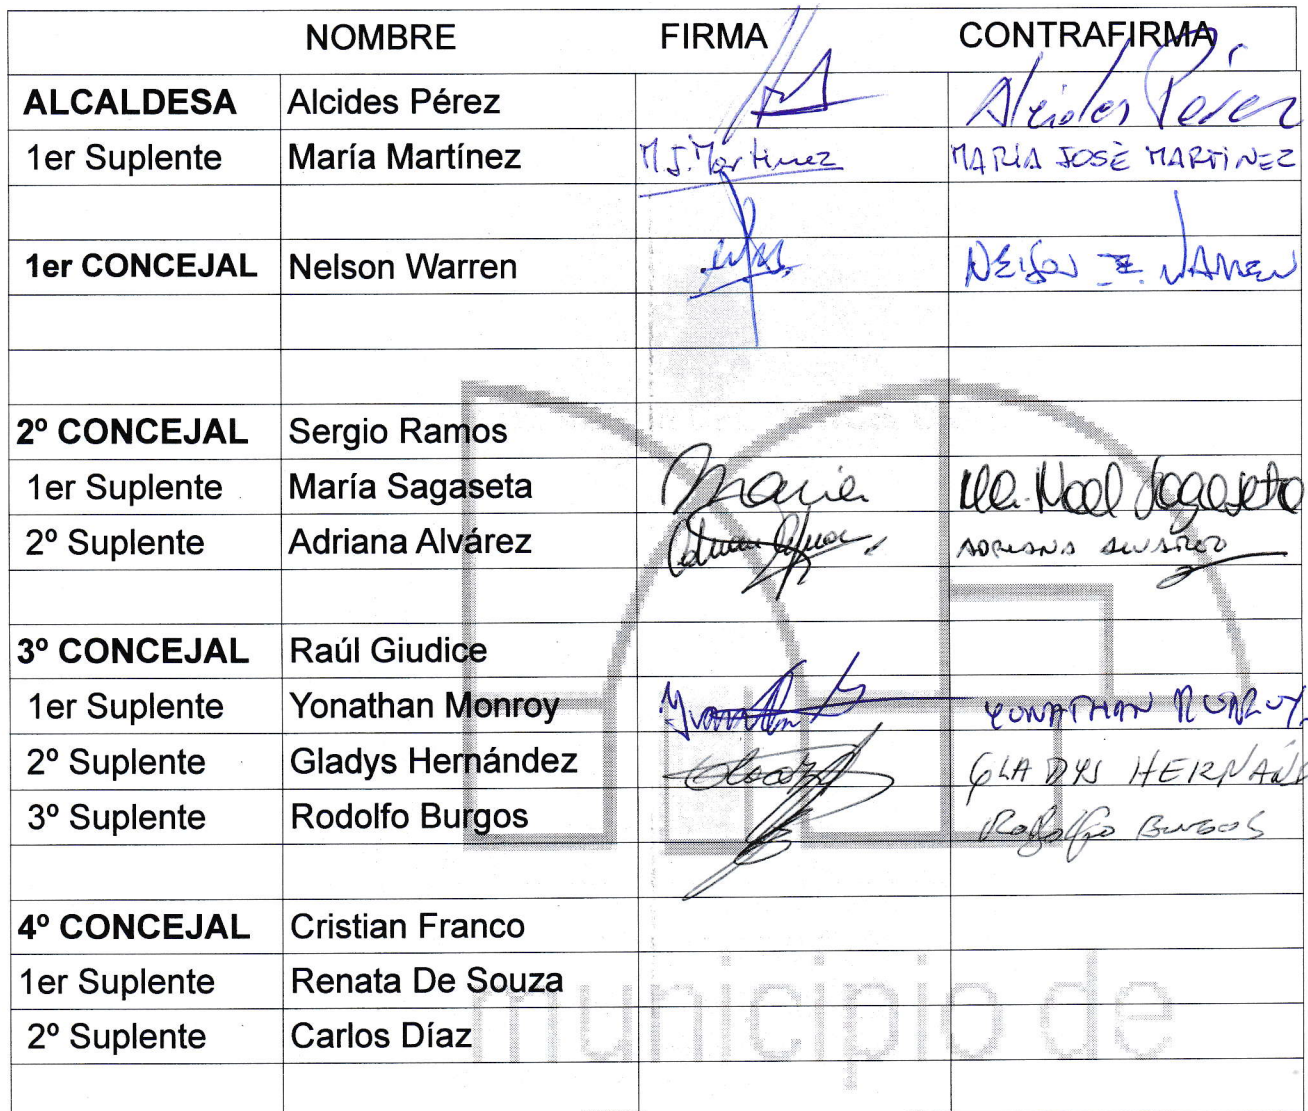 NOMBRE FIRMA CONTRAFIRMA
ALCALDESA Alcides Pérez Alcides Pérez
1er Suplente María Martínez M.J. Martinez MARÍA JOSÉ MARTINEZ
1er CONCEJAL Nelson Warren NELSON E. WARREN
2º CONCEJAL Sergio Ramos
1er Suplente María Sagaseta María Ma. Noel Sagaseta
2º Suplente Adriana Alvárez ADRIANA ALVAREZ
3º CONCEJAL Raúl Giudice
1er Suplente Yonathan Monroy YONATHAN MONROY
2º Suplente Gladys Hernández GLADYS HERNÁN
3º Suplente Rodolfo Burgos Rodolfo Burgos
4º CONCEJAL Cristian Franco
1er Suplente Renata De Souza
2º Suplente Carlos Díaz
municipio de